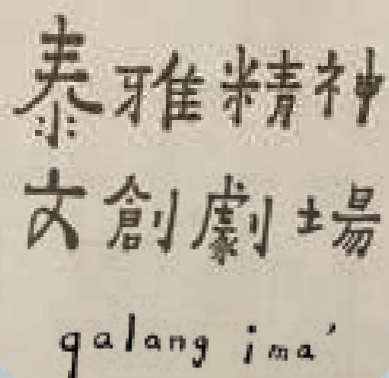 泰雅精神
文創劇場
qalang ima'